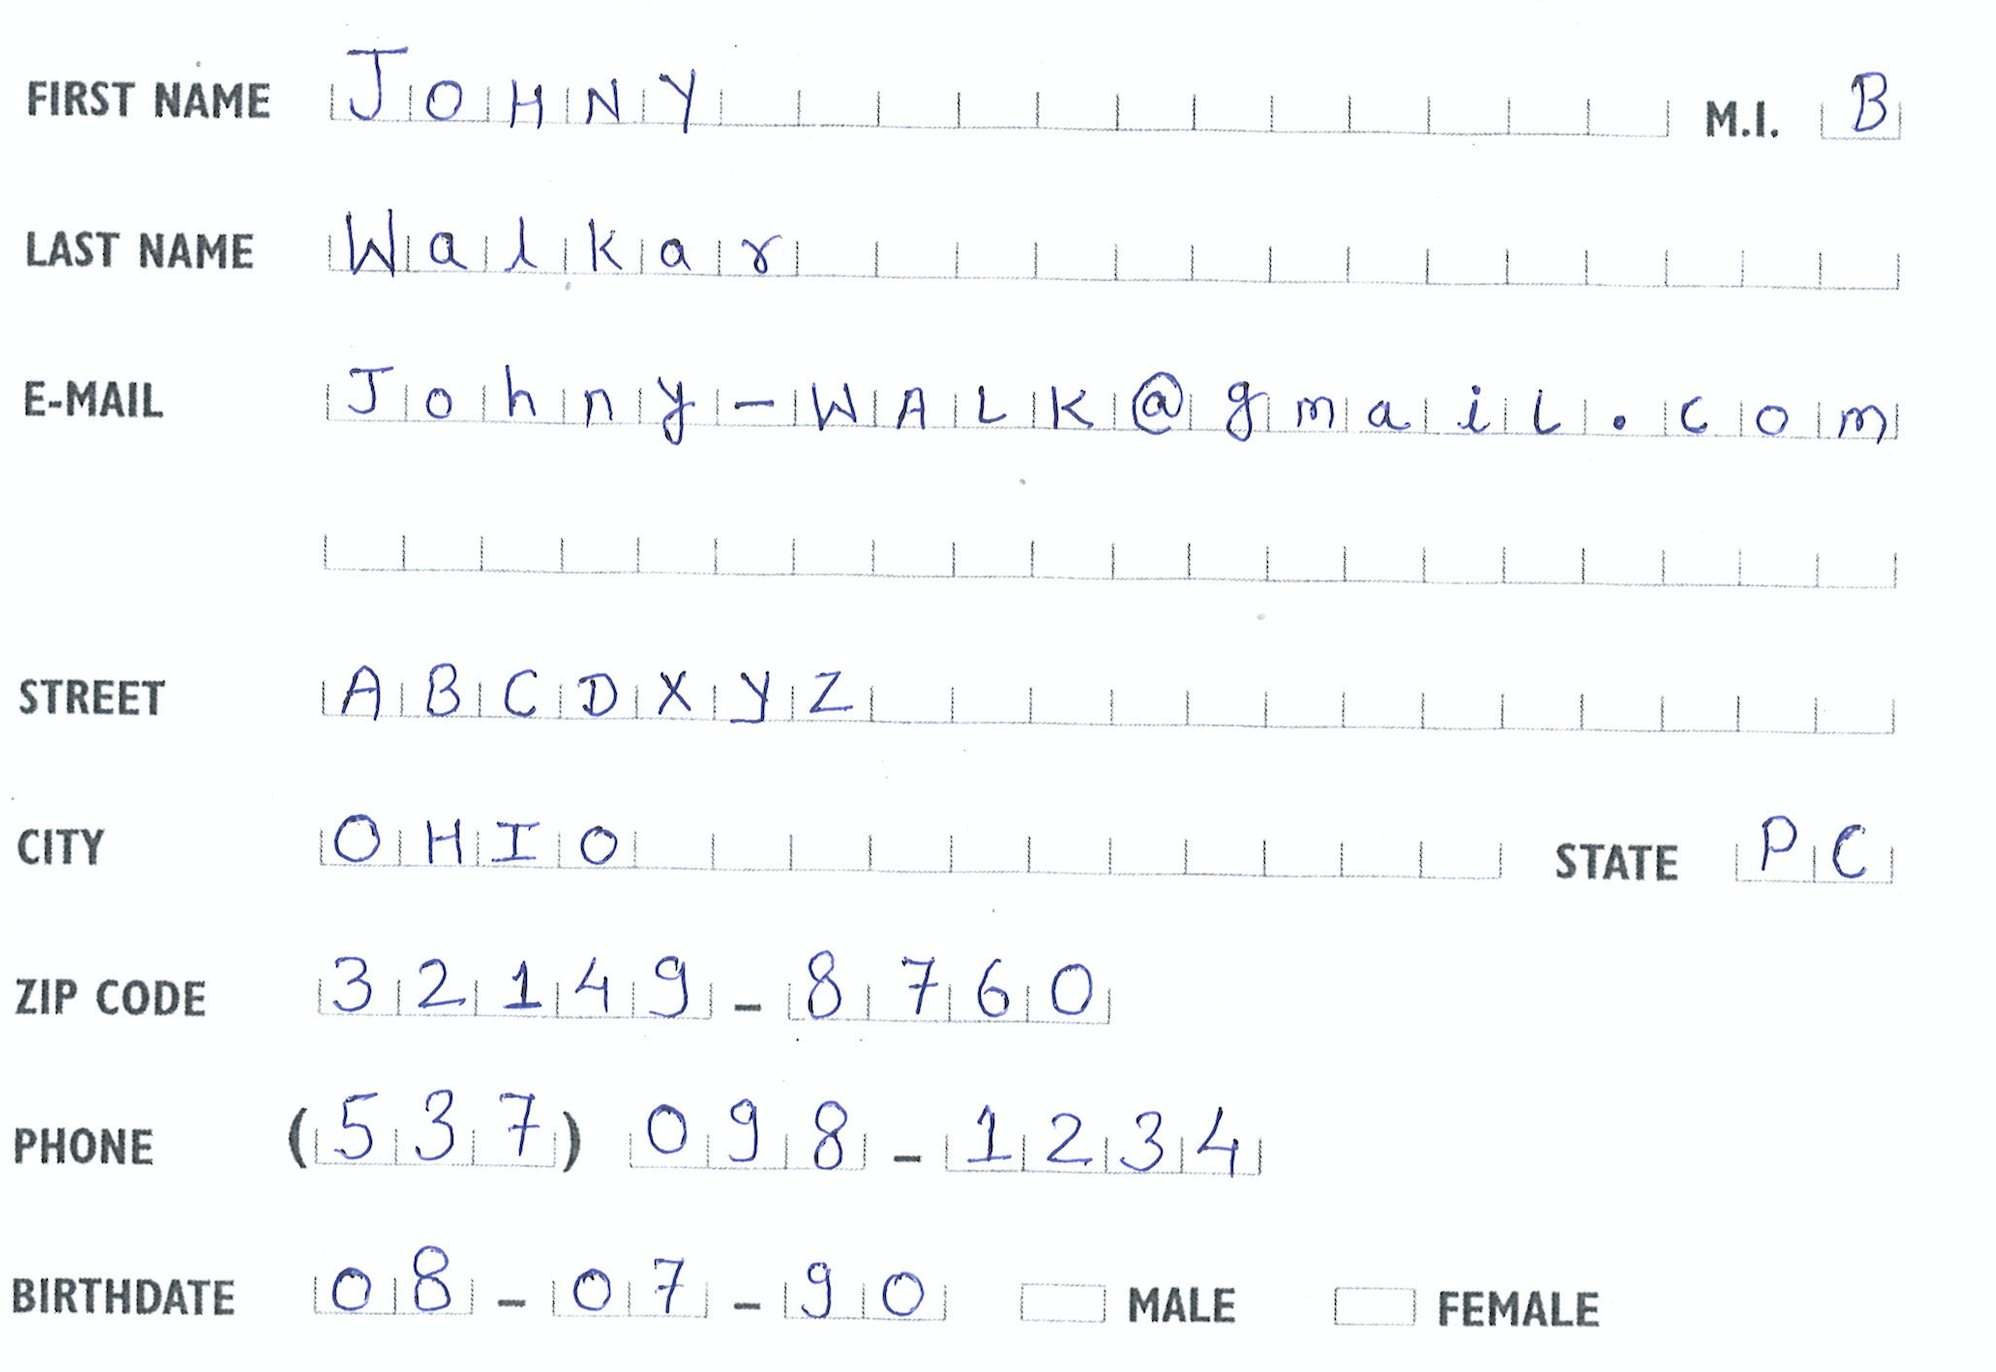 FIRST NAME JOHNY M.I. B
LAST NAME Walkar
E-MAIL Johny-WALK@gmail.com
STREET ABCDXYZ
CITY OHIO STATE PC
ZIP CODE 32149-8760
PHONE (537) 098-1234
BIRTHDATE 08-07-90 MALE FEMALE